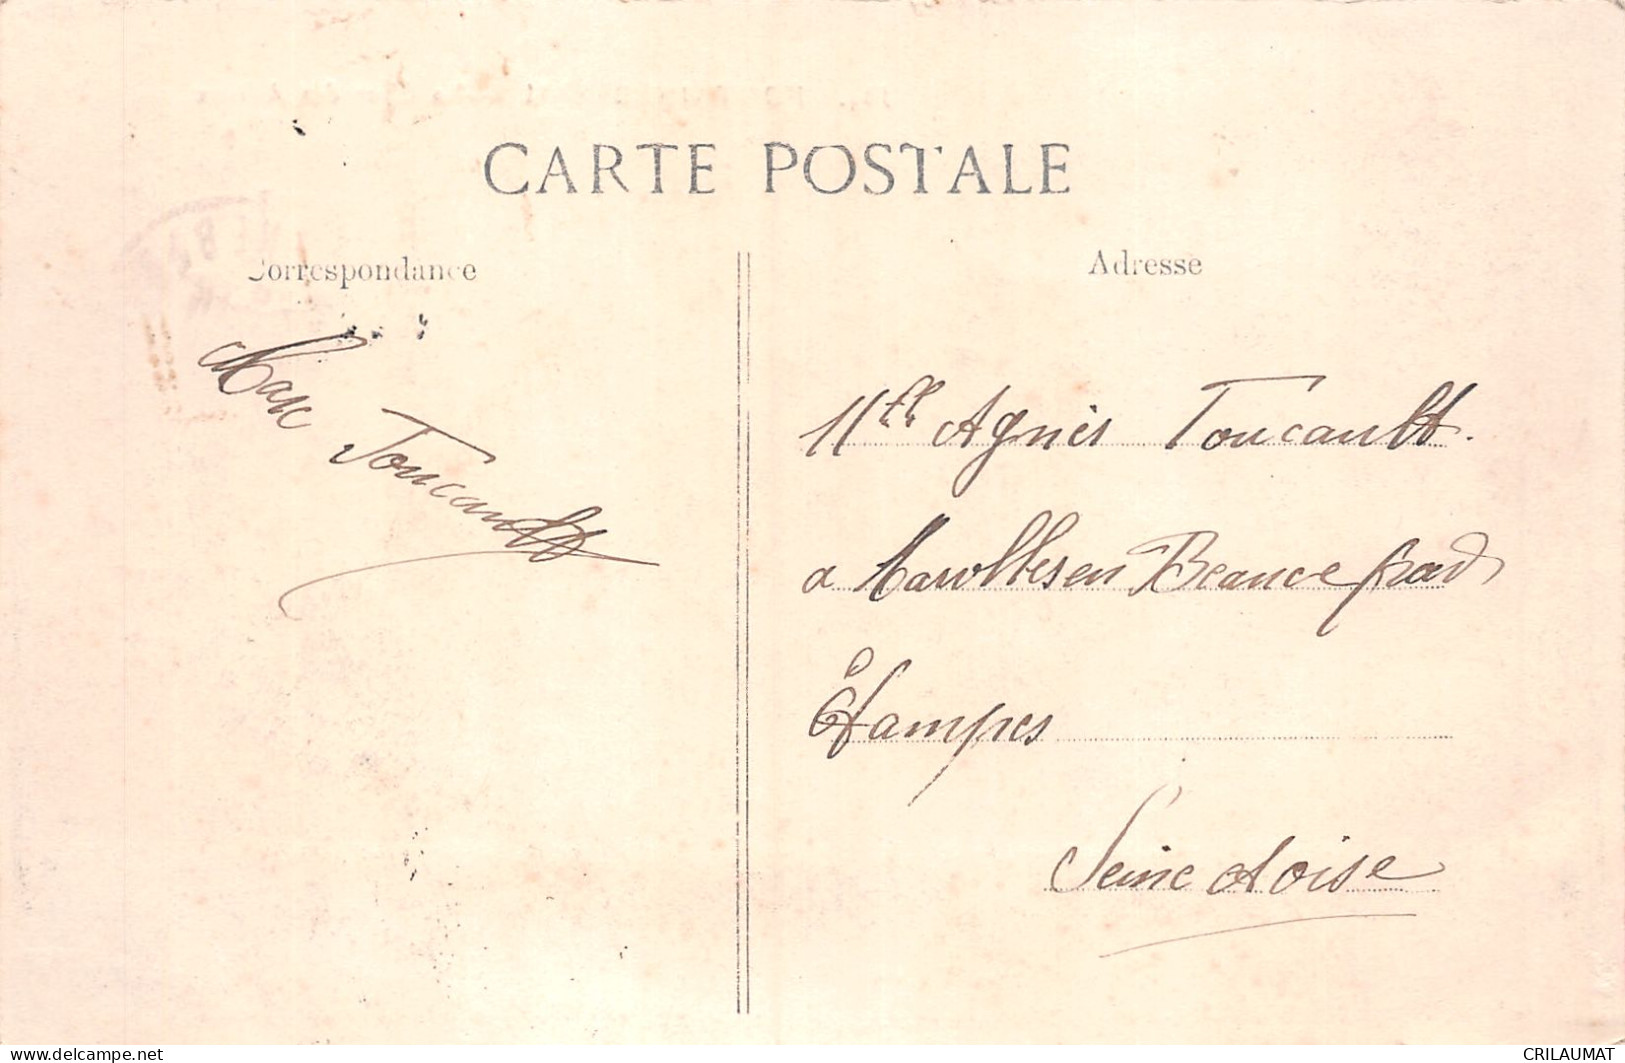 CARTE POSTALE
Correspondance
Adresse
Max Toucault
Mlle Agnès Toucault.
a Marolles en Beauce par
Étampes
Seine et oise
www.delcampe.net
CRILAUMAT